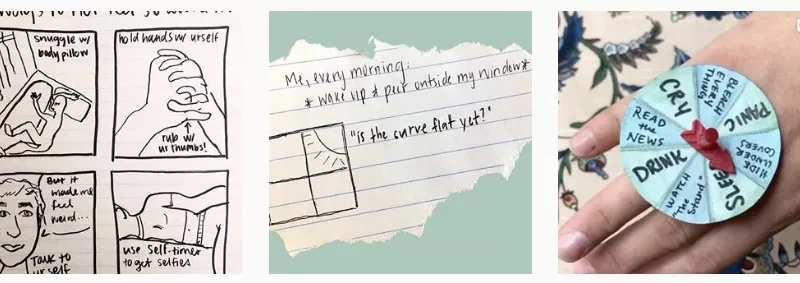 to Not Feel So
snuggle w/
body pillow
hold hands w/ urself
rub w/
ur thumbs!
But it
made me
feel
weird...
Talk to
urself
use self-timer
to get selfies
Me, every morning:
* wake up & peer outside my window*
"is the curve flat yet?"
CRY
BLEACH
EVERY
THING
PANIC
HIDE
UNDER
COVERS
WATCH
"the Stand"
DRINK
READ
the
NEWS